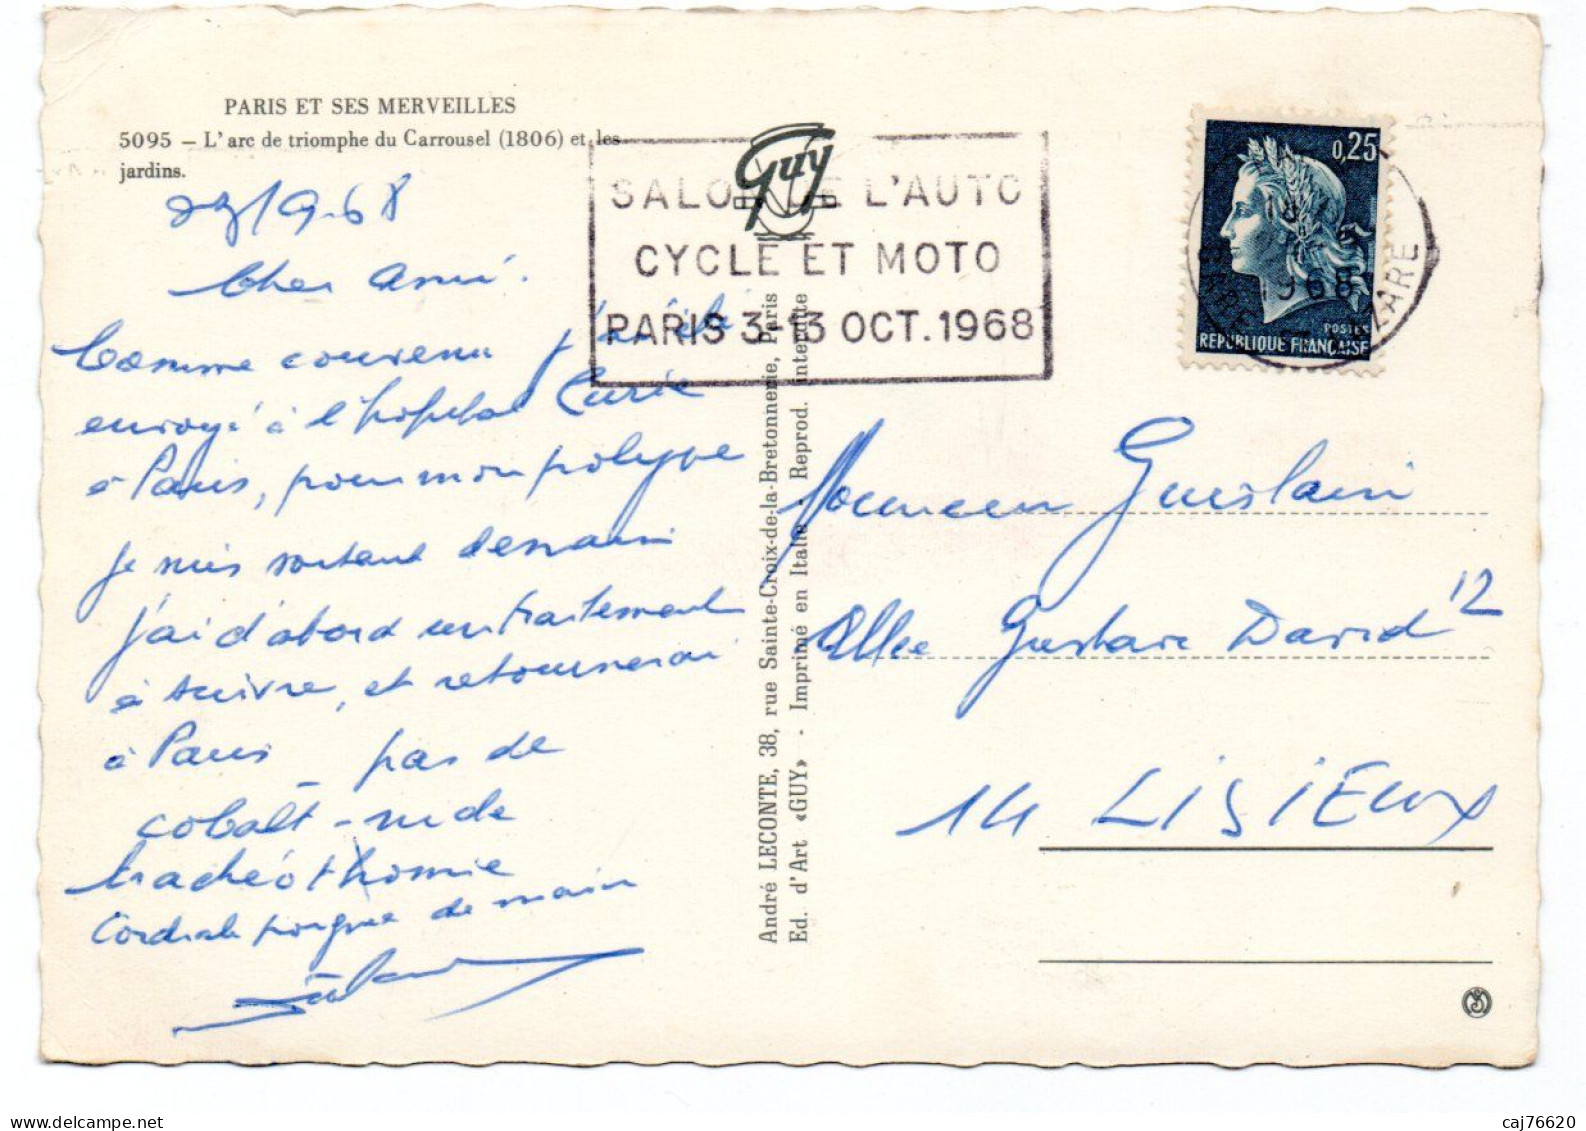 PARIS ET SES MERVEILLES
5095 – L'arc de triomphe du Carrousel (1806) et les
jardins.
23/9-68
Cher Ami.
Comme convenu j'ai été
envoyé à l'hôpital Curie
à Paris, pour mon polype
je suis sortant demain
j'ai d'abord un traitement
à suivre, et retournerai
à Paris – pas de
cobalt – ni de
trachéothomie
Cordiale poignée de main
Guy
SALON DE L'AUTO
CYCLE ET MOTO
PARIS 3-13 OCT. 1968
André LECONTE, 38, rue Sainte-Croix-de-la-Bretonnerie, Paris
Ed. d'Art «GUY» - Imprimé en Italie - Reprod. interdite
0,25
POSTES
REPUBLIQUE FRANÇAISE
1968
LAZARE
Monsieur Guislain
12
Allée Gustave David
14 LISIEUX
delcampe.net
caj76620